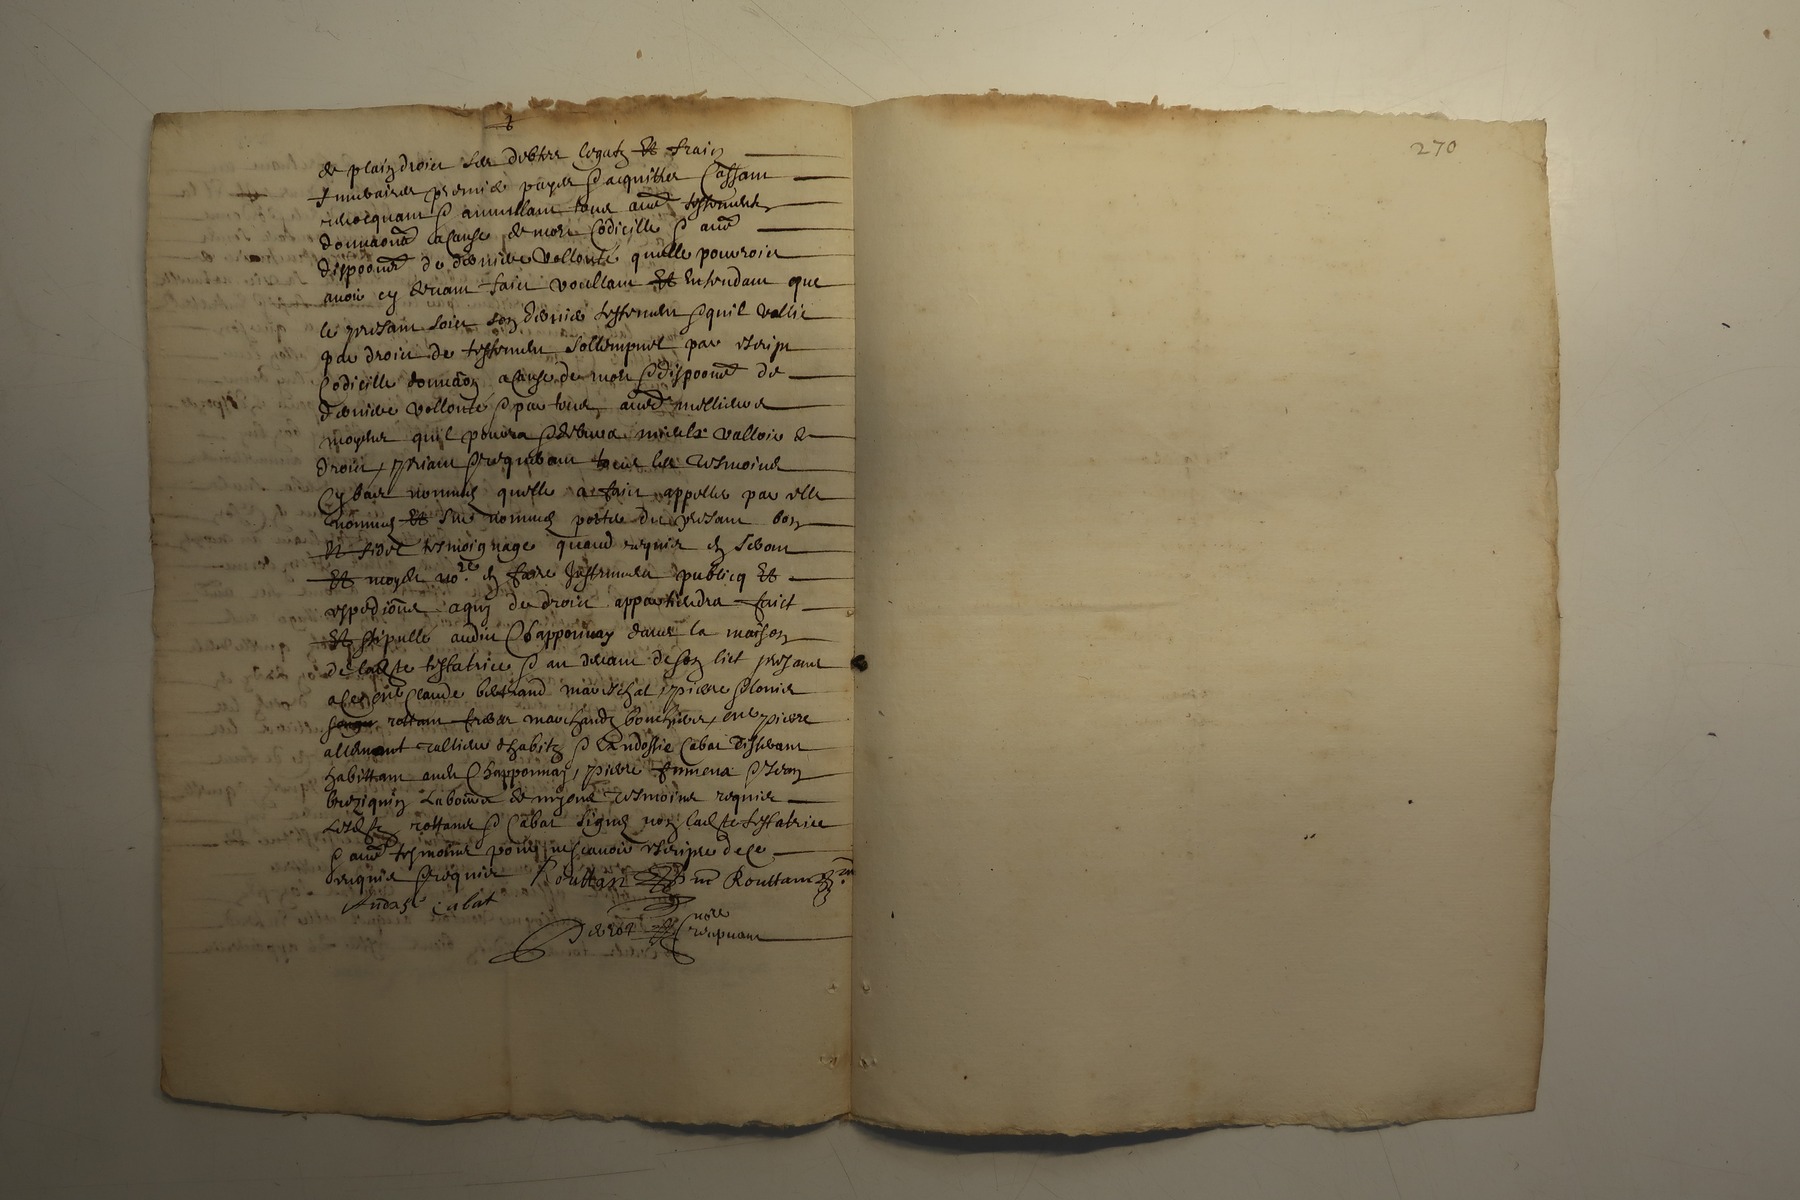 270
de plain droict ses debtes legatz et fraiz
funeraires premier payes & acquittes Cassant
revocquant & annullant tous aues testementz
donnaons a cause de mort Codicille & aues
dispoons de derniere vollonté quelle pourroict
avoir cy devant faict voullant et entendant que
le presant soict son dernier testement & quil vallie
par droict de testement sollempnel par escript
Codicille donnaon a cause de mort & dispoon de
derniere vollonté & par tous aues mellieurs
moyens quil pourra & debvra mieulx valloir de
droict, priant & requerant tous les tesmoins
Cy bas nommes quelle a faict appeller par elle
nommes et sur nommes porter du presant bon
et fidel tesmoignage quand requis en seront
et moyd no.re en faire Instrument publicq et
expedions a quy de droict appartiendra faict
et stipullé audict Chapponnay dans la maison
de lad testatrice & au devant de son lict presant
Claude bertrand mareschal, pierre
rottant freres marchandz bouchiers, pierre
allemant habitz & Andossie Cabat
habittant aud Chapponnay, pierre &
laboureur tesmoins requis
Lesd rottans & Cabat signes non lad testatrice
& aues tesmoins pour ne scavoir escripre de ce
enquis & requis Routtan Routtan
Cabat
no.re
recepvant